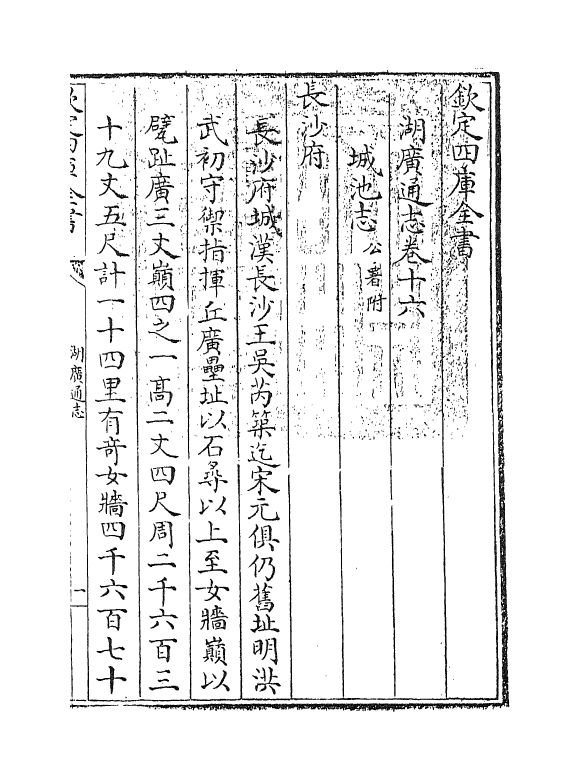 欽定四庫全書
湖廣通志卷十六
城池志公署附
長沙府
長沙府城漢長沙王吳芮築迄宋元俱仍舊址明洪
武初守禦指揮丘廣壘址以石尋以上至女牆巔以
甓趾廣三丈巔四之一高二丈四尺周二千六百三
十九丈五尺計一十四里有竒女牆四千六百七十
欽定四庫全書
湖廣通志
一